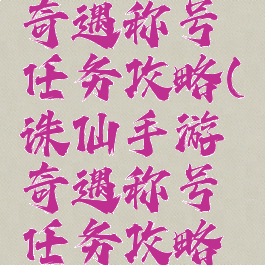 奇遇称号
任务攻略(
诛仙手游
奇遇称号
任务攻略